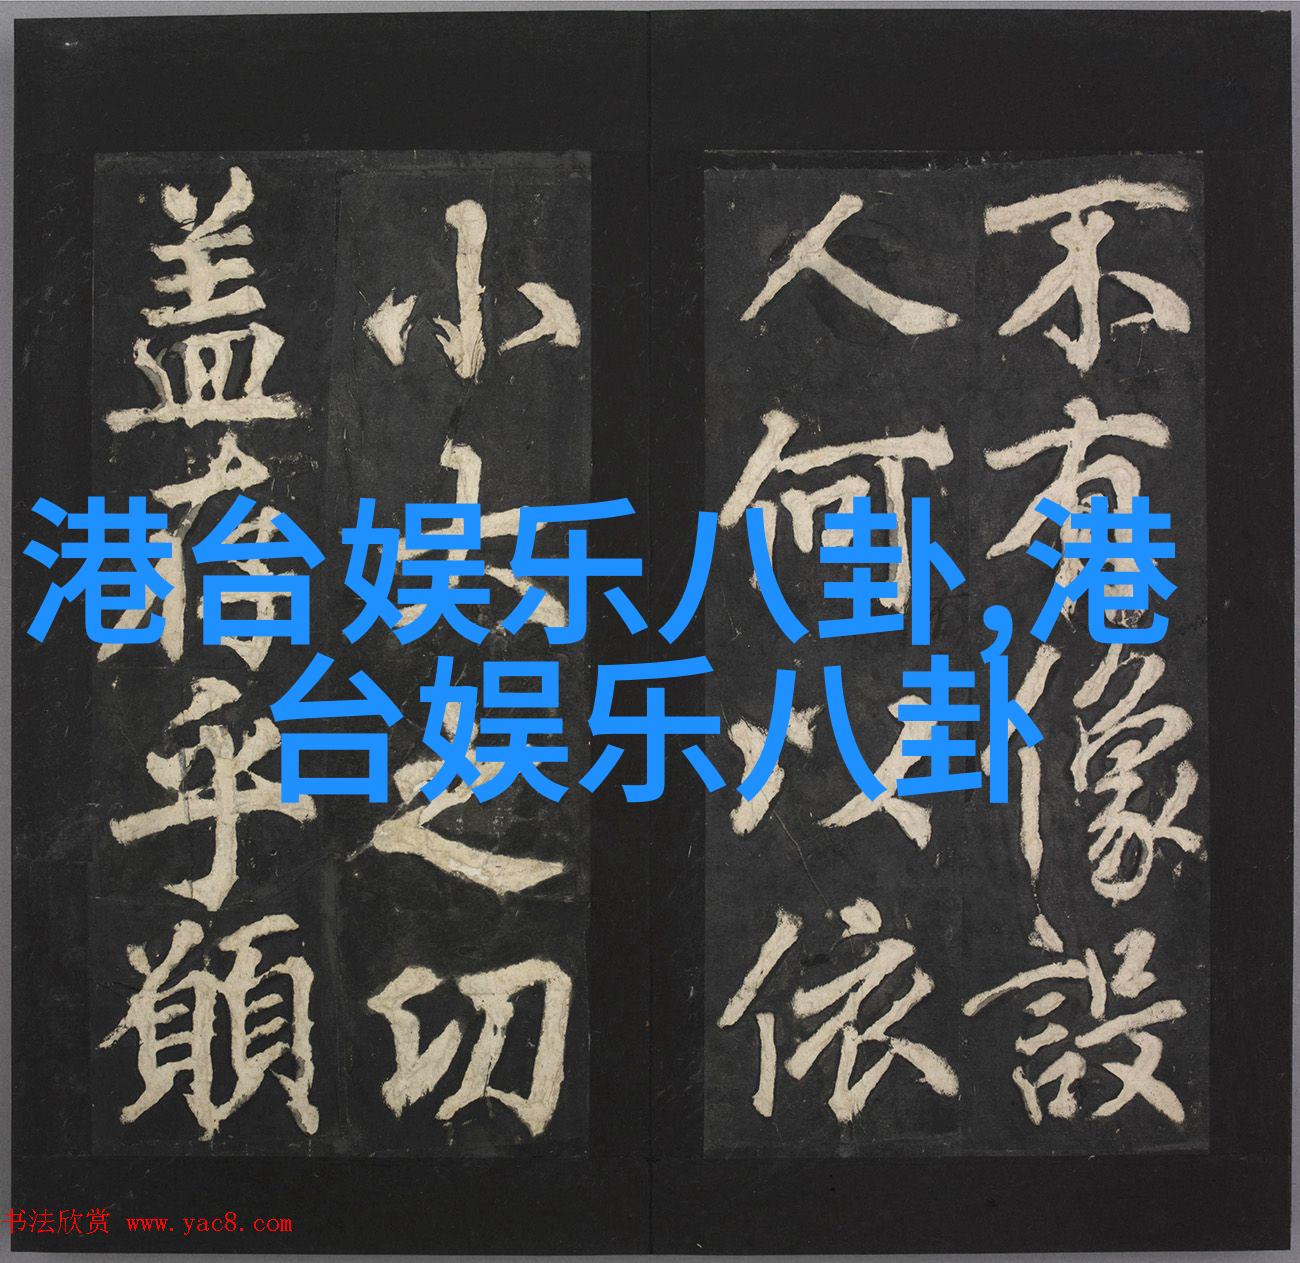 港台娱乐八卦,港
台娱乐八卦
不有像設
人何以依
小之切
盖存乎願
书法欣赏 www.yac8.com